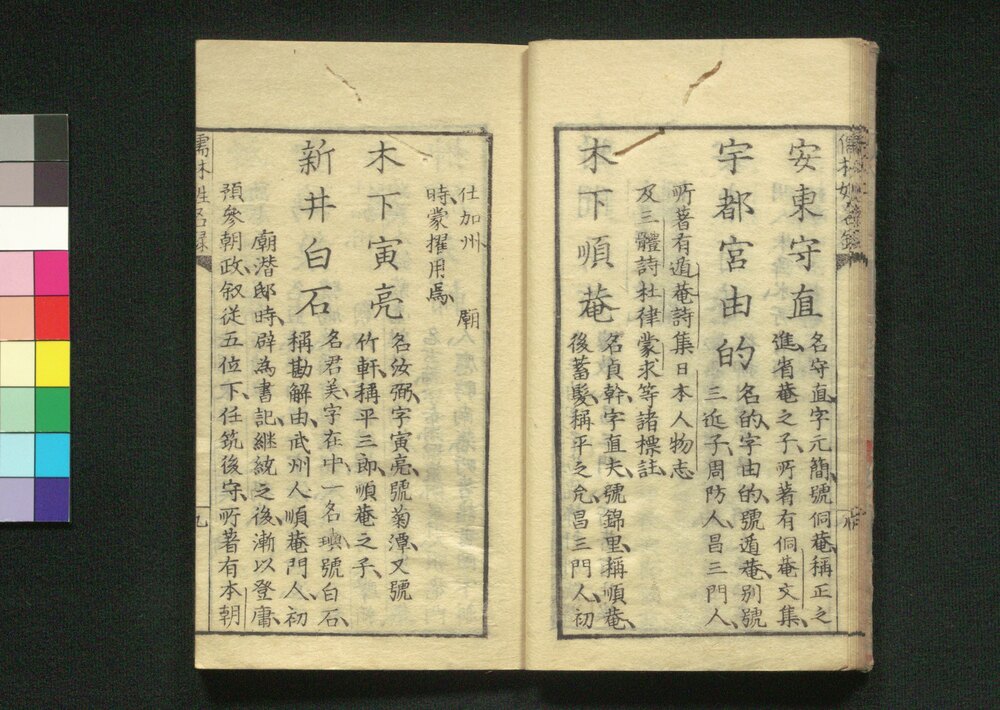 安東守直
名守直、字元簡、號侗菴、稱正之
進、省菴之子、所著有侗菴文集、
宇都宮由的
名的、字由的、號遁菴、別號
三近子、周防人、昌三門人、
所著有遁菴詩集日本人物志
及三體詩杜律蒙求等諸標註、
木下順菴
名貞幹、字直夫、號錦里、稱順菴、
後蓄髮、稱平之允、昌三門人、初
仕加州、　廟
時、蒙擢用焉、
木下寅亮
名汝弼、字寅亮、號菊潭、又號
竹軒、稱平三郎、順菴之子、
新井白石
名君美、字在中、一名璵、號白石、
稱勘解由、武州人、順菴門人、初
廟潛邸時、辟為書記、繼統之後、漸以登庸、
預參朝政、叙從五位下、任筑後守、所著有本朝
儒林姓名録
九